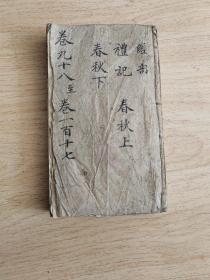 禮記
春秋上
春秋下
卷九十八至
卷一百十七